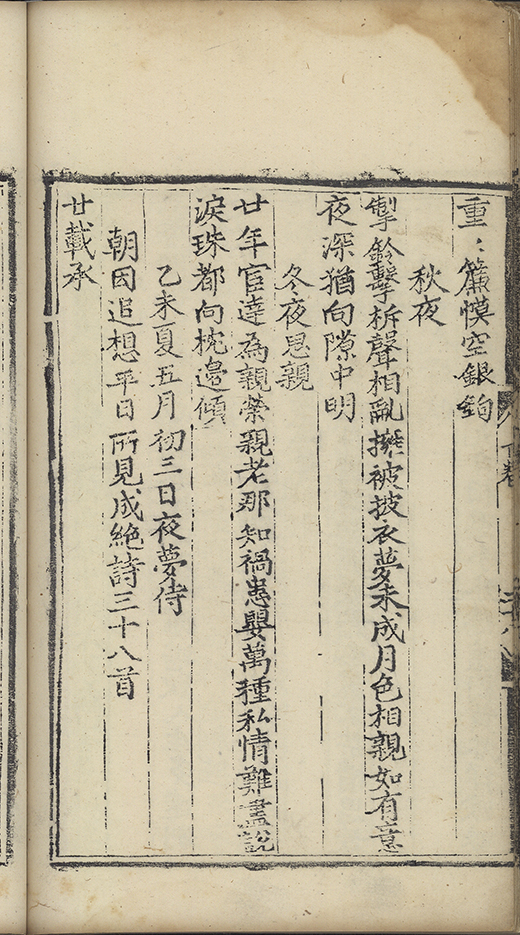 重〻簾幙空銀鉤
秋夜
掣鈴擊柝聲相亂擁被披衣夢未成月色相親如有意
夜深猶向隙中明
冬夜思親
廿年宦達為親榮親老那知禍患嬰萬種私情難盡說
淚珠都向枕邊傾
乙未夏五月初三日夜夢侍
朝因追想平日所見成絕詩三十八首
廿載承
下卷